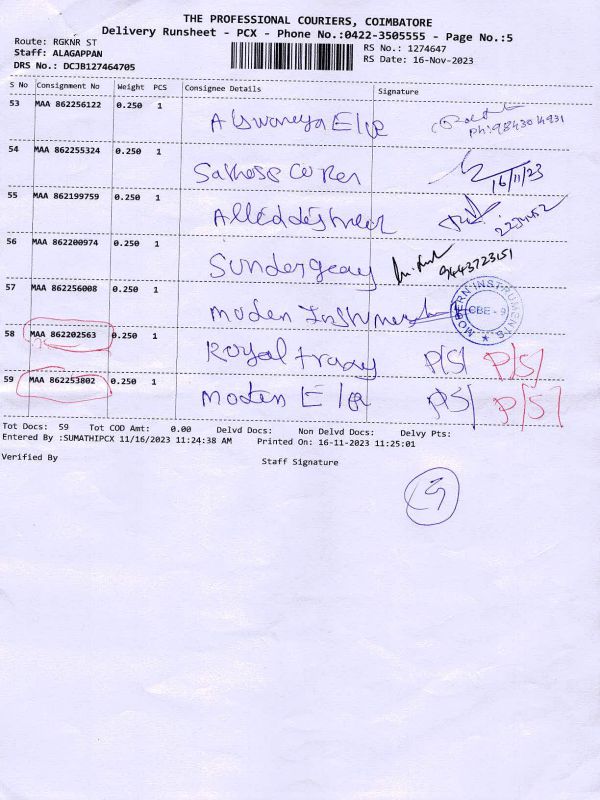 THE PROFESSIONAL COURIERS, COIMBATORE
Delivery Runsheet - PCX - Phone No.:0422-3505555 - Page No.:5
Route: RGKNR ST
RS No.: 1274647
Staff: ALAGAPPAN
RS Date: 16-Nov-2023
DRS No.: DCJB127464705
S No Consignment No Weight PCS Consignee Details Signature
53 MAA 862256122 0.250 1
Ph:9843014931
54 MAA 862255324 0.250 1
16/11/23
55 MAA 862199759 0.250 1
56 MAA 862200974 0.250 1
9443723151
57 MAA 862256008 0.250 1 Moden
MODERN INSTRUMENTS CBE - 9
58 MAA 862202563 0.250 1 Royal P/S/ P/S/
59 MAA 862253802 0.250 1 Moden P/S/ P/S/
Tot Docs: 59 Tot COD Amt: 0.00 Delvd Docs: Non Delvd Docs: Delvy Pts:
Entered By :SUMATHIPCX 11/16/2023 11:24:38 AM Printed On: 16-11-2023 11:25:01
Verified By Staff Signature